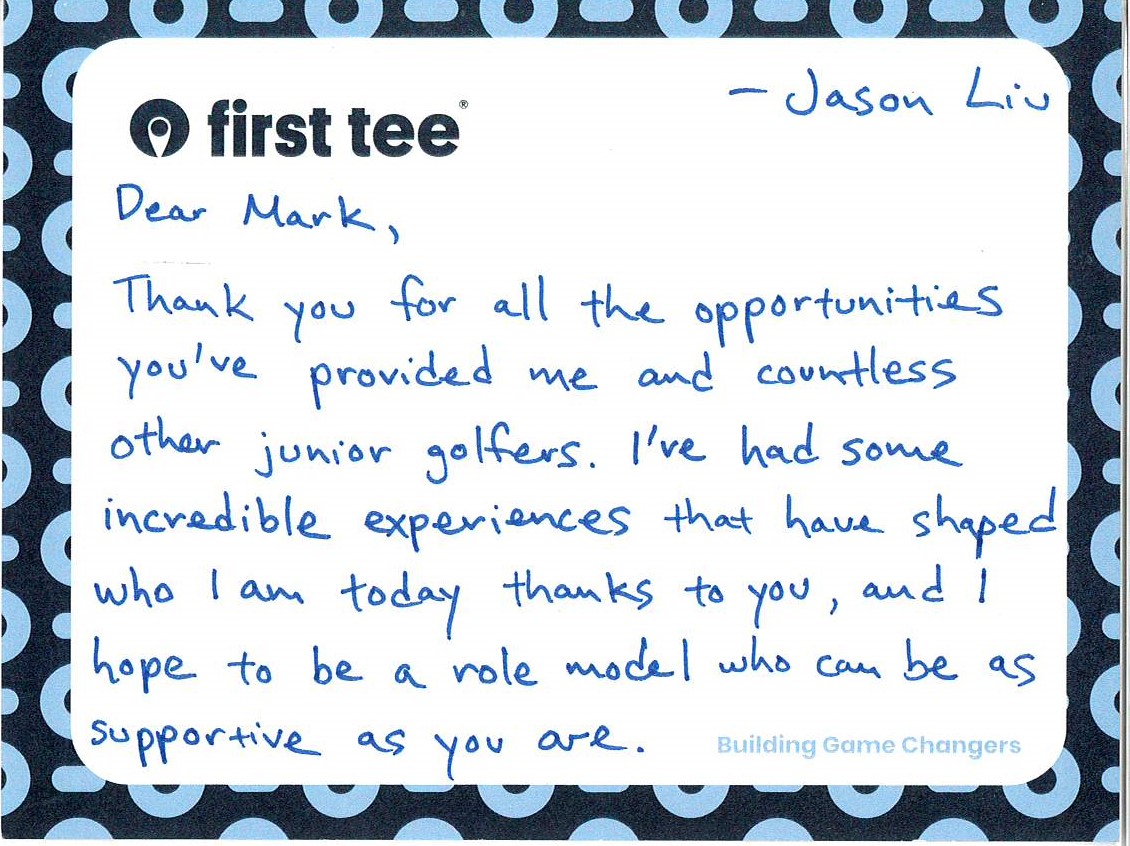 — Jason Liu
first tee®
Dear Mark,
Thank you for all the opportunities
you've provided me and countless
other junior golfers. I've had some
incredible experiences that have shaped
who I am today thanks to you, and I
hope to be a role model who can be as
supportive as you are.
Building Game Changers